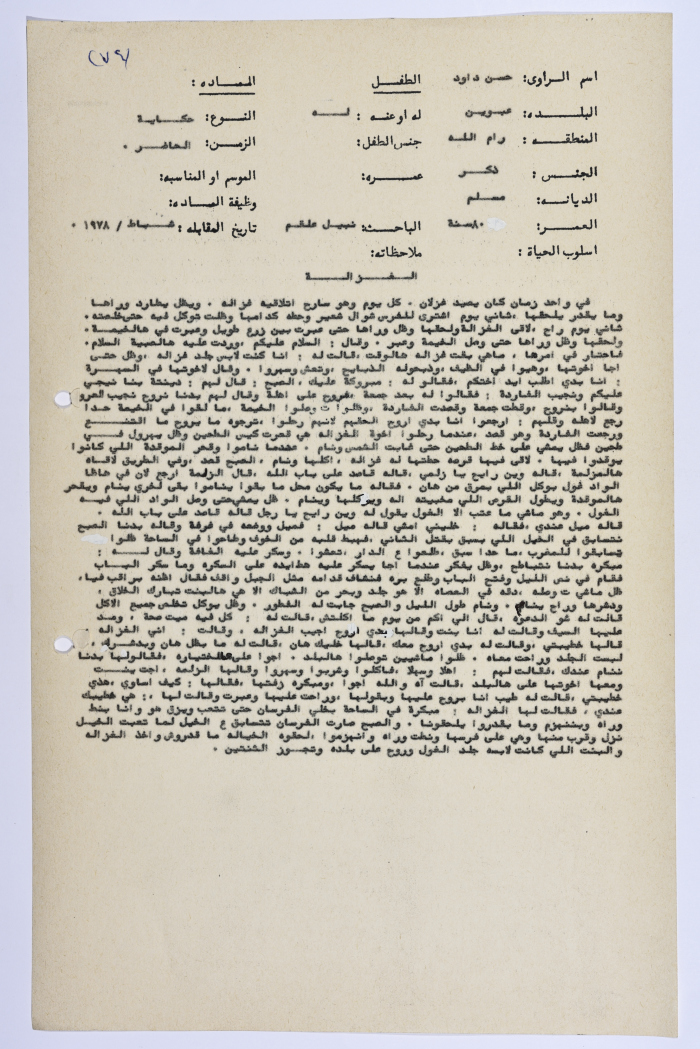 (٧٤)
اسم الراوى: حسن داود الطفل المساده :
البلده: عبوين له او عنه : له النوع: حكاية
المنطقه : رام الله جنس الطفل: الزمن: الحاضر .
الجنس : ذكر عمره: الموسم او المناسبه:
الديانه: مسلم وظيفة الماده:
العمر: ٨٠سنة الباحث: نبيل علقم تاريخ المقابله : شباط / ١٩٧٨ .
اسلوب الحياة : ملاحظاته:
الغزالة
في واحد زمان كان يصيد غزلان . كل يوم وهو سارح اتلاقيه غزاله . ويظل يطارد وراها
وما يقدر يلحقها ،ثاني يوم اشترى للفرس شوال شعير وحطه كدامها وظلت توكل فيه حتى خلصته.
ثاني يوم راح ،لاقى الغزالة ولحقها وظل وراها حتى عبرت بين زرع طويل وعبرت في هالخيمة .
ولحقها وظل وراها حتى وصل الخيمة وعبر . وقال : السلام عليكم ،وردت عليه هالصبية السلام.
فاحتار في امرها ، ماهي بقت غزاله هالوقت ،قالت له : انا كنت لابس جلد غزاله ،وظل حتى
اجا اخوتها ،وهيوا في الظيف ،وذبحوله الذبايح ،وتعشى وسهروا . وقال لاخوتها في السهرة
: انا بدي اطلب ايد اختكم ،فقالو له : مبروكة عليك ،الصبح : قال لهم : ديتنة بنا نيجي
عليكم ونجيب الفاردة : فقالوا له بعد جمعة ،فروح على اهلة وقال لهم بدنا نروح نجيب العرو
وقالوا بنروح ،وقطت جمعة وقصدت الفاردة ،وظلوا ت وصلوا الخيمة، ما لقوا في الخيمة حدا
رجع لاهلة وقلهم : ارجعوا انا بدي اروح الحقهم لانهم رحلوا ،ترجوه ما يروح ما اقتنع
ورجعت الفاردة وهو قعد ،عندما رحلوا اخوة الغزاله هي قحرت كيس الطحين وظل يهرول في
طحين فظل يمشي على خط الطحين حتى غابت الشمس ونام . عندما ناموا وقحر الموقدة اللي كانوا
يوقدوا فيها . لاقى فيها قرصة حطتها له غزاله ، اكلها ونام ، الصبح قعد ،وفي الطريق لاقاه
هالمزلمة ،قاله وين رايح يا زلمي ،قاله قاصد على باب الله .قال الزلمة ارجع لان في هاظا
الواد غول بوكل اللي بمرق من هان . فقاله ما يكون محل ما بقوا يناموا بقى لغرى ينام ويقحر
هالموقدة ويطول القرص اللي مخبيته اله ويوكلها وينام . ظل يمشي حتى وصل الواد اللي فيه
الغول . وهو ماشي ما عتب الا الغول يقول له وين رايح يا رجل قاله قاصد على باب الله .
قاله ميل عندي ،فقاله : خليني امشي قاله ميل : فميل ووضعه في غرفة وقاله بدنا الصبح
نتسابق في الخيل اللي بسبق بقتل الثاني .فهبط قلبه من الخوف وطاحوا في الساحة ظلوا
يتسابقوا للمغرب ،ما حدا سبق ،طلعوا ع الدار ،تعشوا . وسكر عليه الغافة وقال له :
مبكره بدنا نتباطح ،وظل يفكر عندما اجا يسكر عليه هط ايده على السكره وما سكر الباب
فقام في نص الليل وفتح الباب وطلع بره فشاف قدامه مثل الجبل واقف فقال اظنه براقب فيا،
ظل ماشي ت وصله ، دقه في العصاه الا هو جلد وبحر من الشباك الا هي هالبنت تبارك الخلاق ،
ودشرها وراح ينام . ونام طول الليل و الصبح جابت له الفطور . وظل يوكل تخلص جميع الاكل
قالت له شو الدعوه ،قال الي اكم من يوم ما اكلتش ،قالت له : كله فيه ميت صحة ، وصد
عليها السيف وقالت له انا بنت وقالها بدي اروح اجيب الغزاله . وقالت : اني الغزاله .
قالها خطيبتي ،وقالت له بدي اروح معك ،قالها خليك هان ،قالت له ما بظل هان وبدشرك ،
لبست الجلد وراحت معاه . ظلوا ماشيين توصلوا هالبلد . اجوا على هالختياره ،فقالولها بدنا
ننام عندك ،فقالت لهم : اهلا وسهلا ،فاكلوا وشربوا وسهروا وقالها الزلمه ، اجت بنت
ومعها اخوتها على هالبلد ،قالت آه والله اجوا ،ومبكره زفتها ،فقالها : كيف اساوي ،هذي
خطيبتي ،قالت له طيب انا بروح عليها وبقولها ،وراحت عليها وعبرت وقالت لها ،: هي خطيبك
عندي ، فقالت لها الغزاله : مبكرة في الساحة بخلي الفرسان حتى تتعب وبزق هو وانا بنط
وراه وبننهزم وما بقدروا يلحقونا . والصبح صارت الفرسان تتسابق ع الخيل لما تعبت الخيل
نزل وقرب منها وهي على فرسها ونطت وراه وانهزموا ،لحقوه الخياله ما قدروش واخذ الغزاله
والبنت اللي كانت لابسه جلد الغول وروح على بلده وتجوز الثنتين .